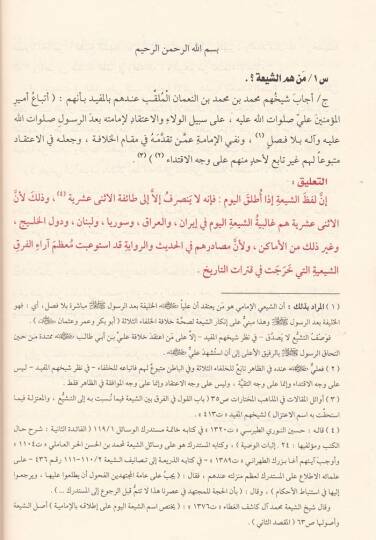 بسم الله الرحمن الرحيم
س ١/ مَن هم الشيعة ؟ .
ج/ أجابَ شيخُهم محمد بن محمد بن النعمان المُلقَّب عندهم بالمفيد بأنهم : ( أتباعُ أميرِ
المؤمنينَ عليّ صلوات الله عليه ، على سبيل الولاءِ والاعتقادِ لإمامته بعدَ الرسولِ صلوات الله
عليه وآلـه بلا فصل (١) ، ونفي الإمامةِ عمَّن تقدَّمَهُ في مقامِ الخلافة ، وجعلـه في الاعتقـاد
متبوعاً لهم غير تابع لأحدٍ منهم على وجه الاقتداء (٢) ) (٣)
التعليق :
إنَّ لفظَ الشيعةِ إذا أُطلقَ اليوم : فإنه لا يَنصرفُ إلاَّ إلى طائفة الاثني عشرية (٤) ، وذلكَ لأنَّ
الاثنى عشرية هم غالبيةُ الشيعةِ اليوم في إيران ، والعراق ، وسوريا ، ولبنان ، ودول الخلـيـج ،
وغير ذلك من الأماكن ، ولأنَّ مصادرهم في الحديث والروايةِ قد استوعبت مُعظمَ آراءِ الفرقِ
الشيعيةِ التي خَرَجَت في فترات التاريخ .
( ١ ) المرادُ بذلك : أن الشيعي الإمامي هو مَن يعتقد أن عليَّاً الخليفة بعد الرسول ﷺ مباشرة بلا فصل ، أي : فهو
الخليفة بعد الرسول ﷺ وهذا مبنيٌّ على إنكار الشيعة لصحَّة خلافة الخلفاء الثلاثة ( أبو بكر وعمر وعثمان ) .
فوَصْفُ التشيُّع لا يَصدُق – في نظر شيخهم المفيد – إلاَّ على مَن اعتقدَ خلافة عليِّ بن أبي طالب ممتدة من حين
التحاق الرسول ﷺ بالرفيق الأعلى إلى أن استُشهدَ عليٌّ .
( ٢ ) فعليٌّ عنده في الظاهر تابعٌ للخلفاء الثلاثة وفي الباطن متبوعٌ لهم فاتباعه للخلفاء – في نظر شيخهم المفيد – ليس
على وجه الاقتداء وإنما على وجه التقيَّة ، وليس على وجه الاعتقاد وإنما على وجه الموافقة في الظاهر فقط .
( ٣ ) أوائل المقالات في المذاهب المختارات ص٣٥ ( باب القول في الفرق بين الشيعة فيما نُسبت به إلى التشيُّع ، والمعتزلة فيما
استحقَّت به اسم الاعتزال ) لشيخهم المفيد « ت٤١٣ » .
( ٤ ) قاله : حسين النوري الطبرسي « ت١٣٢٠ » في كتابه خاتمة مستدرك الوسائل ١١٩/١ ( الفائدة الثانية : شرح حال
الكتب ومؤلفيها : ٢٤. إثبات الوصية ) ، وكتابه المستدرك هو على وسائل الشيعة لمحمد بن الحسن الحر العاملي « ت١١٠٤ »
وأوجبَ آيتهم آغا بـزرك الطهراني « ت١٣٨٩ » – في كتابه الذريعة إلى تصانيف الشيعة ١١٠/٢-١١١ رقم ٤٣٦ – على
علمائه الاطلاع على المستدرك لعظم منزلته عندهم ، فقال : ( يجبُ على عامة المجتهدين الفحول أن يطلعوا عليهـا ، ويرجعـوا
إليها في استنباط الأحكام ) ، وقال : ( بأن الحجة للمجتهد في عصرنا هذا لا تتمُّ قبل الرجوع إلى المستدرك ... ) .
وقال شيخ الشيعة محمد آل كاشف الغطاء « ت١٣٧٦ » : ( يختص اسم الشيعة اليوم على إطلاقه بالإمامية ) أصل الشيعة
وأصولها ص٦٣ ( المقصد الثاني ) .